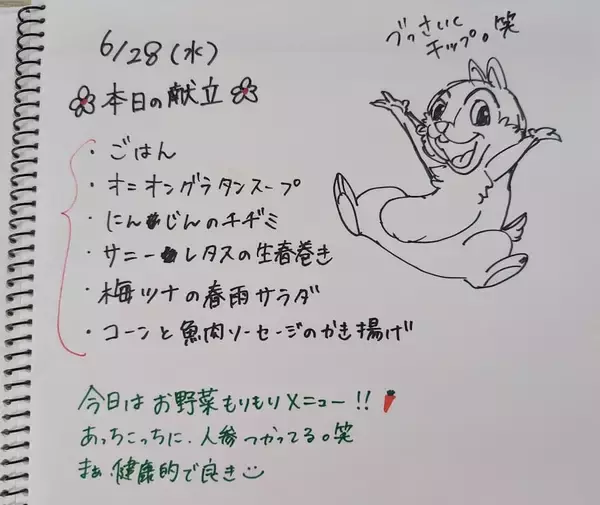 6/28(水)
本日の献立
・ごはん
・オニオングラタンスープ
・にんじんのチヂミ
・サニーレタスの生春巻き
・梅ツナの春雨サラダ
・コーンと魚肉ソーセージのかき揚げ
づっさいく
チップ。笑
今日はお野菜もりもりメニュー!!
あっちこっちに、人参つかってる。笑
まぁ、健康的で良き